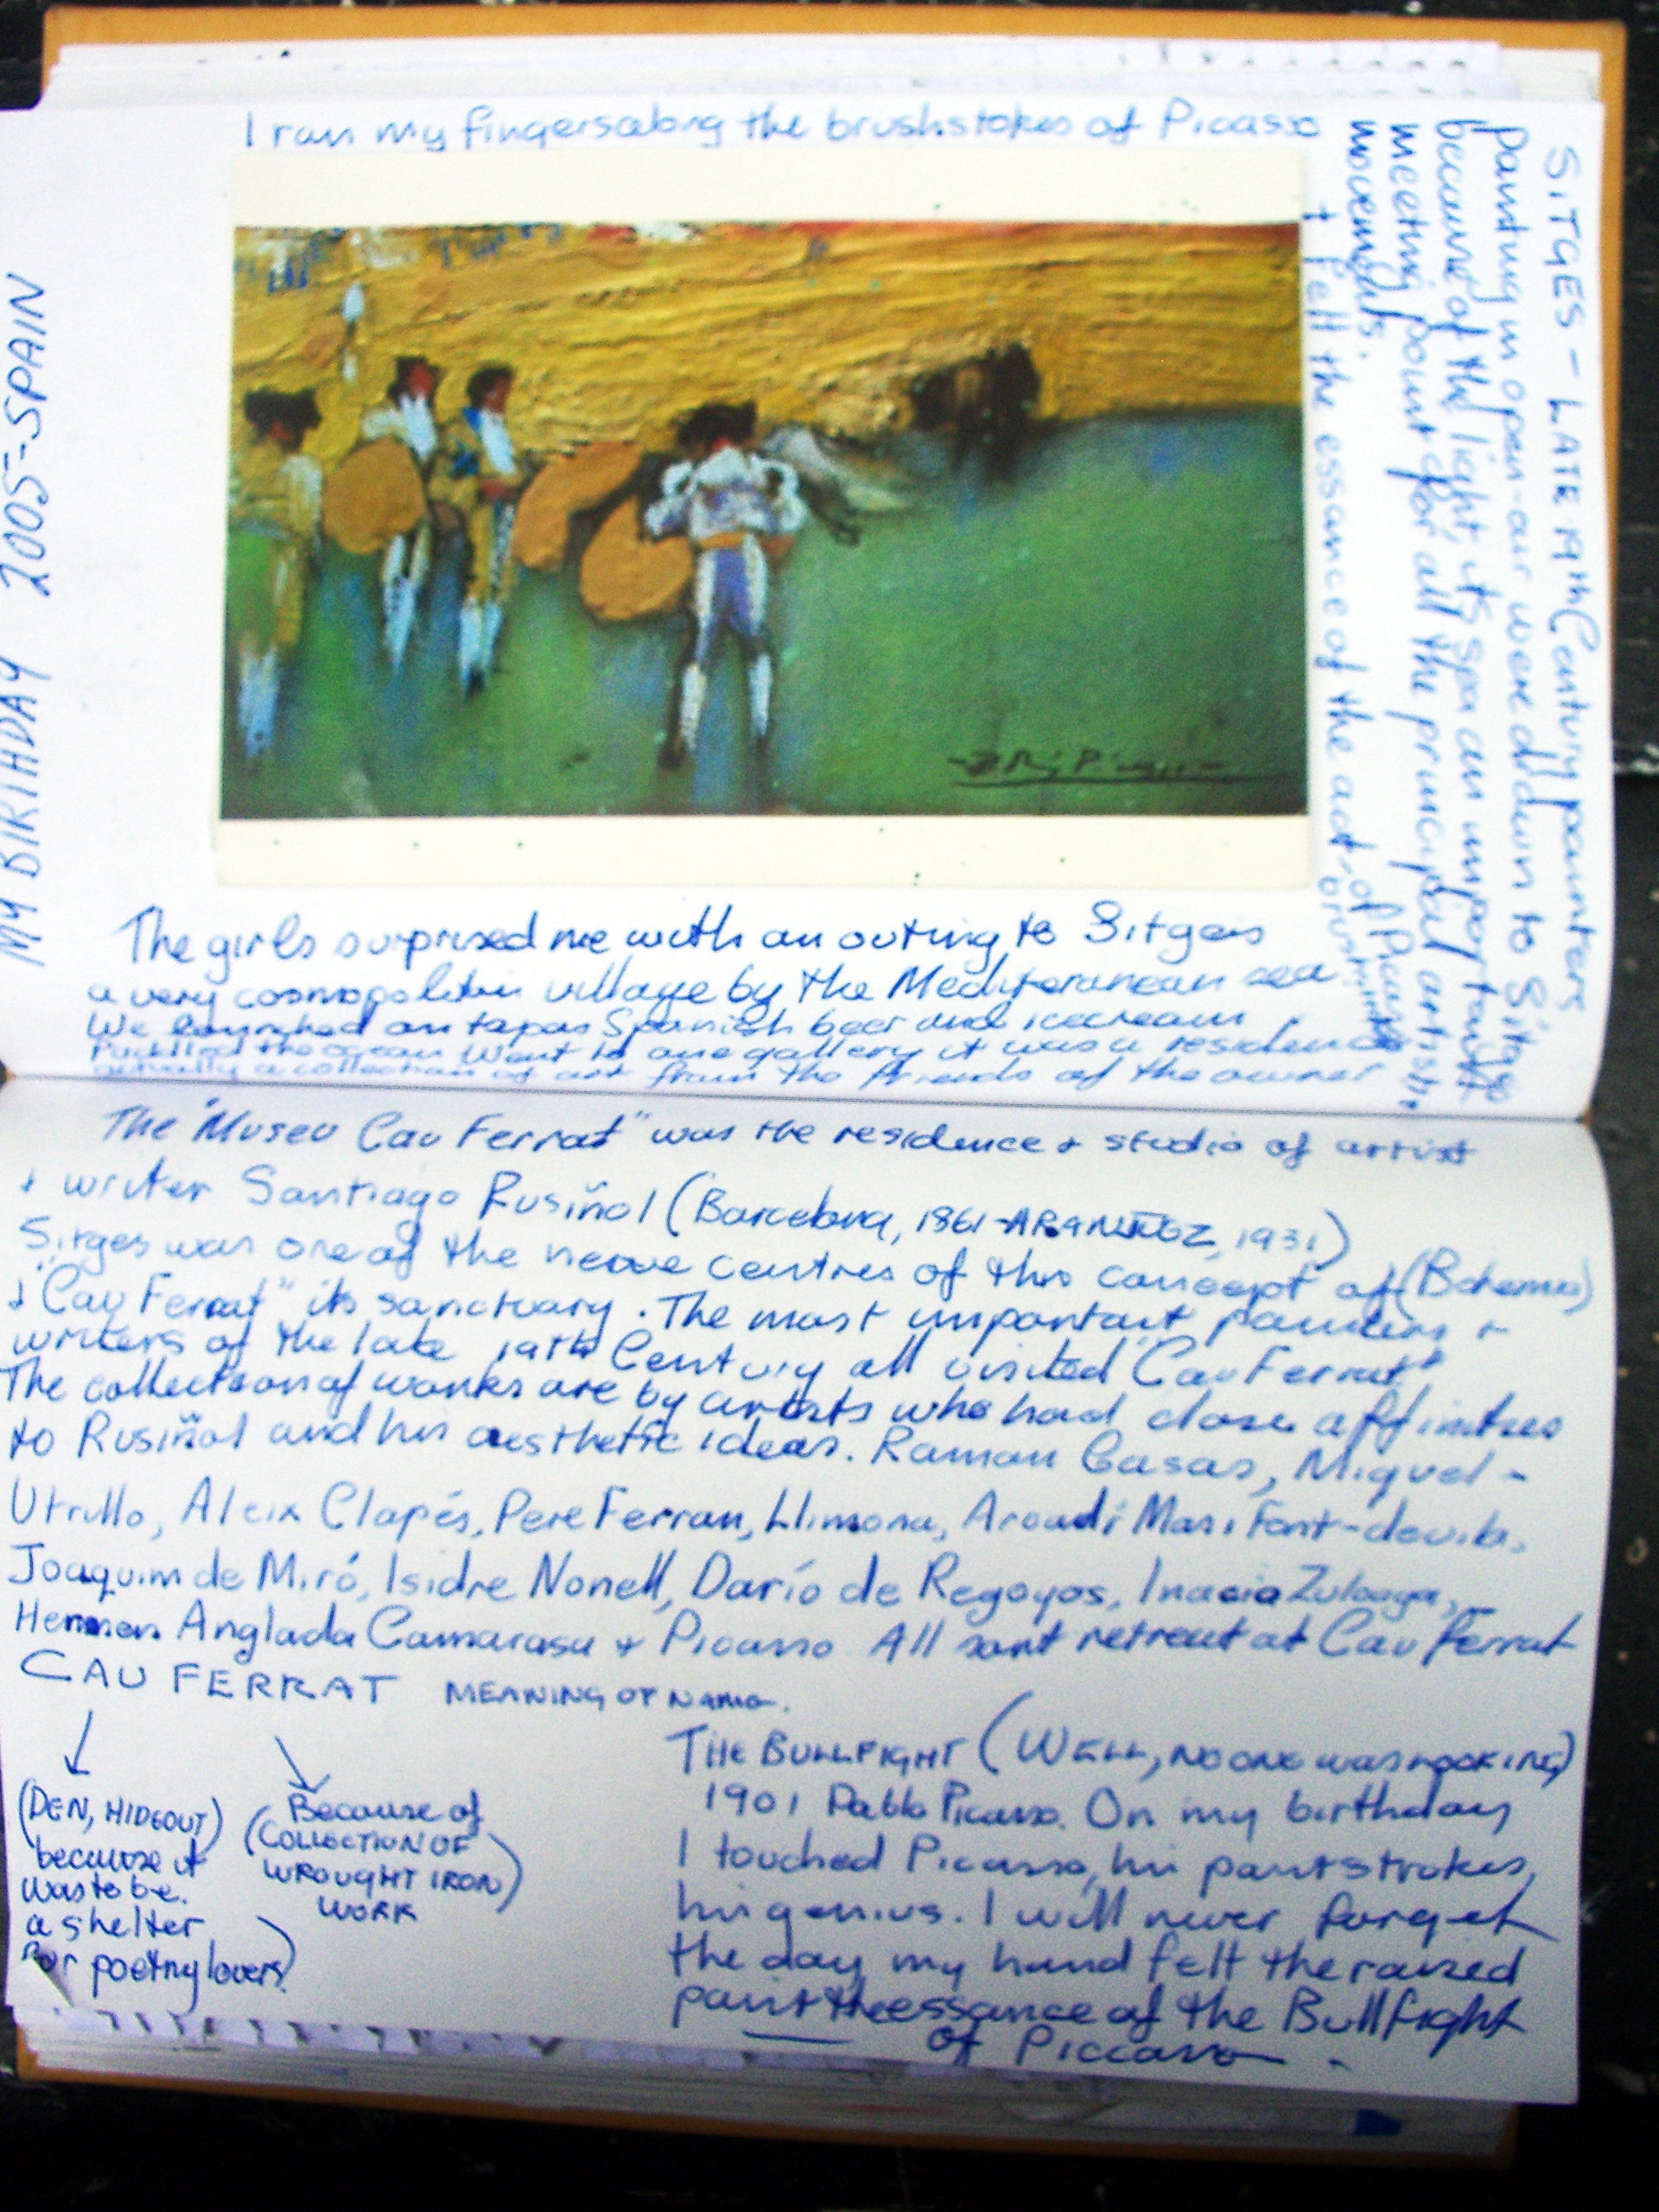 MY BIRTHDAY 2005-SPAIN
I ran my fingers along the brushstokes of Picasso
+ Felt the essance of the act of Picasso's
brushstroke
SITGES - LATE 19th Century painters
painting in open-air were drawn to Sitges
because of the light, its spa an important
meeting point for all the principal artistic
movements.
- P Ruiz Picasso -
The girls surprised me with an outing to Sitges
a very cosmopolitan village by the Mediteranean sea
We launched on tapas Spanish beer and icecream.
Paddled the ocean Went to one gallery it was a residence
actually a collection of art from the friends of the owner
The "Museu Cau Ferrat" was the residence + studio of artist
+ writer Santiago Rusiñol (Barcelona, 1861-ARANJUEZ, 1931)
Sitges was one of the nerve centres of this concept of (Bohemia)
+ "Cau Ferrat" its sanctuary. The most important painters +
writers of the late 19th Century all visited "Cau Ferrat"
The collection of works are by artists who had close affinities
to Rusiñol and his aesthetic ideas. Ramon Casas, Miquel -
Utrillo, Aleix Clapés, Pere Ferran, Llimona, Arcadi Mas i Font-devila,
Joaquim de Miró, Isidre Nonell, Darío de Regoyos, Inacio Zuloaga,
Hermen Anglada Camarasa + Picasso. All sort retreat at Cau Ferrat
CAU FERRAT MEANING OF NAME.
(DEN, HIDEOUT)
because it
was to be
a shelter
for poetry lovers)
Because of
(COLLECTION OF
WROUGHT IRON)
WORK
THE BULLFIGHT (WELL, NO ONE WAS LOOKING)
1901 Pablo Picasso. On my birthday
I touched Picasso, his paintstrokes,
his genius. I will never forget
the day my hand felt the raised
paint the essance of the Bullfight
of Piccasso.